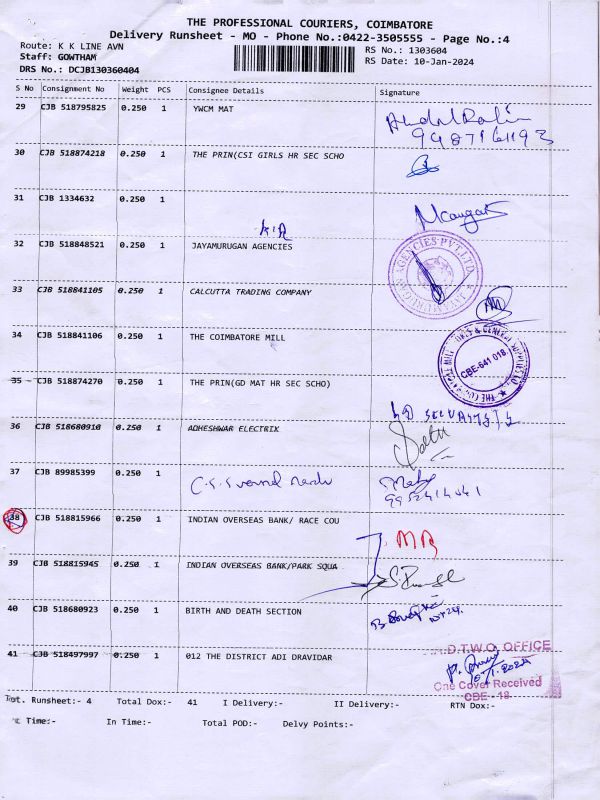 THE PROFESSIONAL COURIERS, COIMBATORE
Delivery Runsheet - MO - Phone No.:0422-3505555 - Page No.:4
Route: K K LINE AVN
RS No.: 1303604
Staff: GOWTHAM
RS Date: 10-Jan-2024
DRS No.: DCJB130360404
S No Consignment No Weight PCS Consignee Details Signature
29 CJB 518795825 0.250 1 YWCM MAT
9487161193
30 CJB 518874218 0.250 1 THE PRIN(CSI GIRLS HR SEC SCHO
31 CJB 1334632 0.250 1
32 CJB 518848521 0.250 1 JAYAMURUGAN AGENCIES
AGENCIES PVT.LTD.
33 CJB 518841105 0.250 1 CALCUTTA TRADING COMPANY
34 CJB 518841106 0.250 1 THE COIMBATORE MILL
CBE-641 018
35 CJB 518874270 0.250 1 THE PRIN(GD MAT HR SEC SCHO)
36 CJB 518680910 0.250 1 ADHESHWAR ELECTRIK
37 CJB 89985399 0.250 1
38 CJB 518815966 0.250 1 INDIAN OVERSEAS BANK/ RACE COU
39 CJB 518815945 0.250 1 INDIAN OVERSEAS BANK/PARK SQUA
40 CJB 518680923 0.250 1 BIRTH AND DEATH SECTION
41 CJB 518497997 0.250 1 012 THE DISTRICT ADI DRAVIDAR
D.T.W.O. OFFICE
One Cover Received
CBE - 18
Tot. Runsheet:- 4 Total Dox:- 41 I Delivery:- II Delivery:- RTN Dox:-
Time:- In Time:- Total POD:- Delvy Points:-